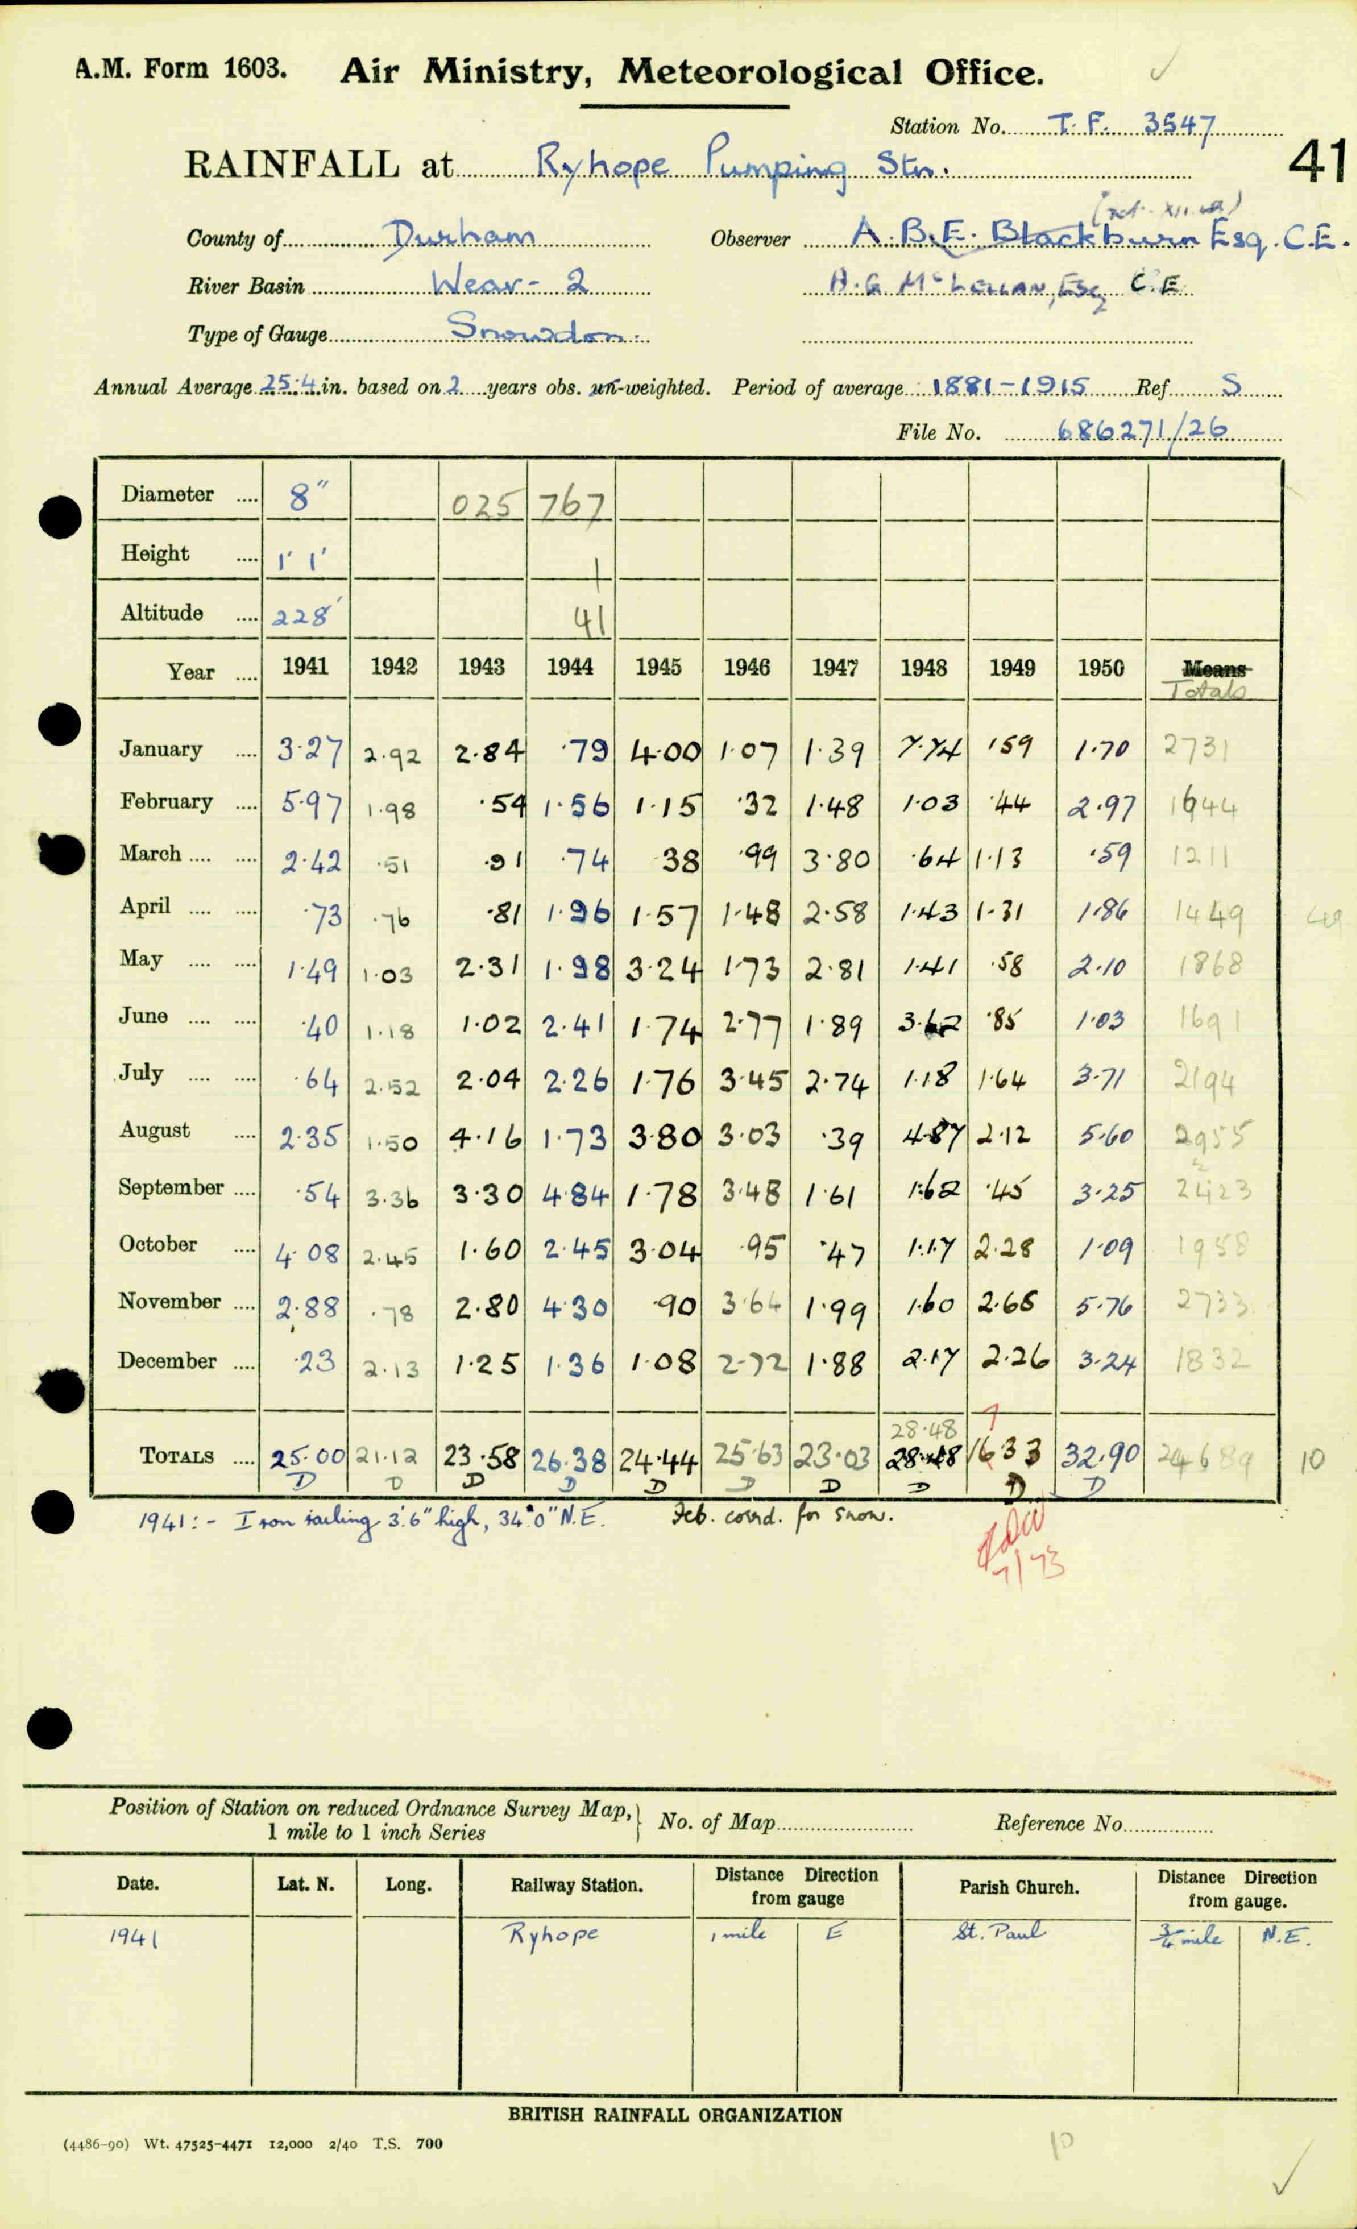 A.M. Form 1603. Air Ministry, Meteorological Office.
Station No. T.F. 3547
41
RAINFALL at Ryhope Pumping Stn.
County of Durham Observer A.B.E. Blackburn Esq. C.E.
River Basin Wear - 2 A.G McLellan, Esq C.E
Type of Gauge Snowdon
Annual Average 25.4 in. based on 2 years obs. un-weighted. Period of average 1881-1915 Ref S
File No. 686271/26
Diameter .... 8" 025 767
Height .... 1' 1" 1
Altitude .... 228' 41
Year .... 1941 1942 1943 1944 1945 1946 1947 1948 1949 1950 Means
Totals
January .... 3.27 2.92 2.84 .79 4.00 1.07 1.39 7.74 1.59 1.70 2731
February .... 5.97 1.98 .54 1.56 1.15 .32 1.48 1.03 .44 2.97 1644
March .... .... 2.42 .51 .91 .74 38 .99 3.80 .64 1.13 .59 1211
April .... .... .73 .76 .81 1.96 1.57 1.48 2.58 1.43 1.31 1.86 1449
May .... .... 1.49 1.03 2.31 1.98 3.24 1.73 2.81 1.41 .58 2.10 1868
June .... .... .40 1.18 1.02 2.41 1.74 2.77 1.89 3.62 .85 1.03 1691
July .... .... .64 2.52 2.04 2.26 1.76 3.45 2.74 1.18 1.64 3.71 2194
August .... 2.35 1.50 4.16 1.73 3.80 3.03 .39 4.87 2.12 5.60 2955
September .... .54 3.36 3.30 4.84 1.78 3.48 1.61 1.62 .45 3.25 2423
October .... 4.08 2.45 1.60 2.45 3.04 .95 .47 1.17 2.28 1.09 1958
November .... 2.88 .78 2.80 4.30 .90 3.64 1.99 1.60 2.68 5.76 2733
December .... .23 2.13 1.25 1.36 1.08 2.72 1.88 2.17 2.26 3.24 1832
28.48 7
TOTALS .... 25.00 21.12 23.58 26.38 24.44 25.63 23.03 28.48 16.33 32.90 24689 10
D D D D D D D D D D
1941:- Iron railing 3'.6" high, 34'.0" N.E. Feb. corrd. for snow.
7/73
Position of Station on reduced Ordnance Survey Map,
1 mile to 1 inch Series
No. of Map Reference No.
Date. Lat. N. Long. Railway Station. Distance Direction from gauge Parish Church. Distance Direction from gauge.
1941 Ryhope 1 mile E St. Paul 3/4 mile N.E.
BRITISH RAINFALL ORGANIZATION
(4486-90) Wt. 47525-4471 12,000 2/40 T.S. 700
10